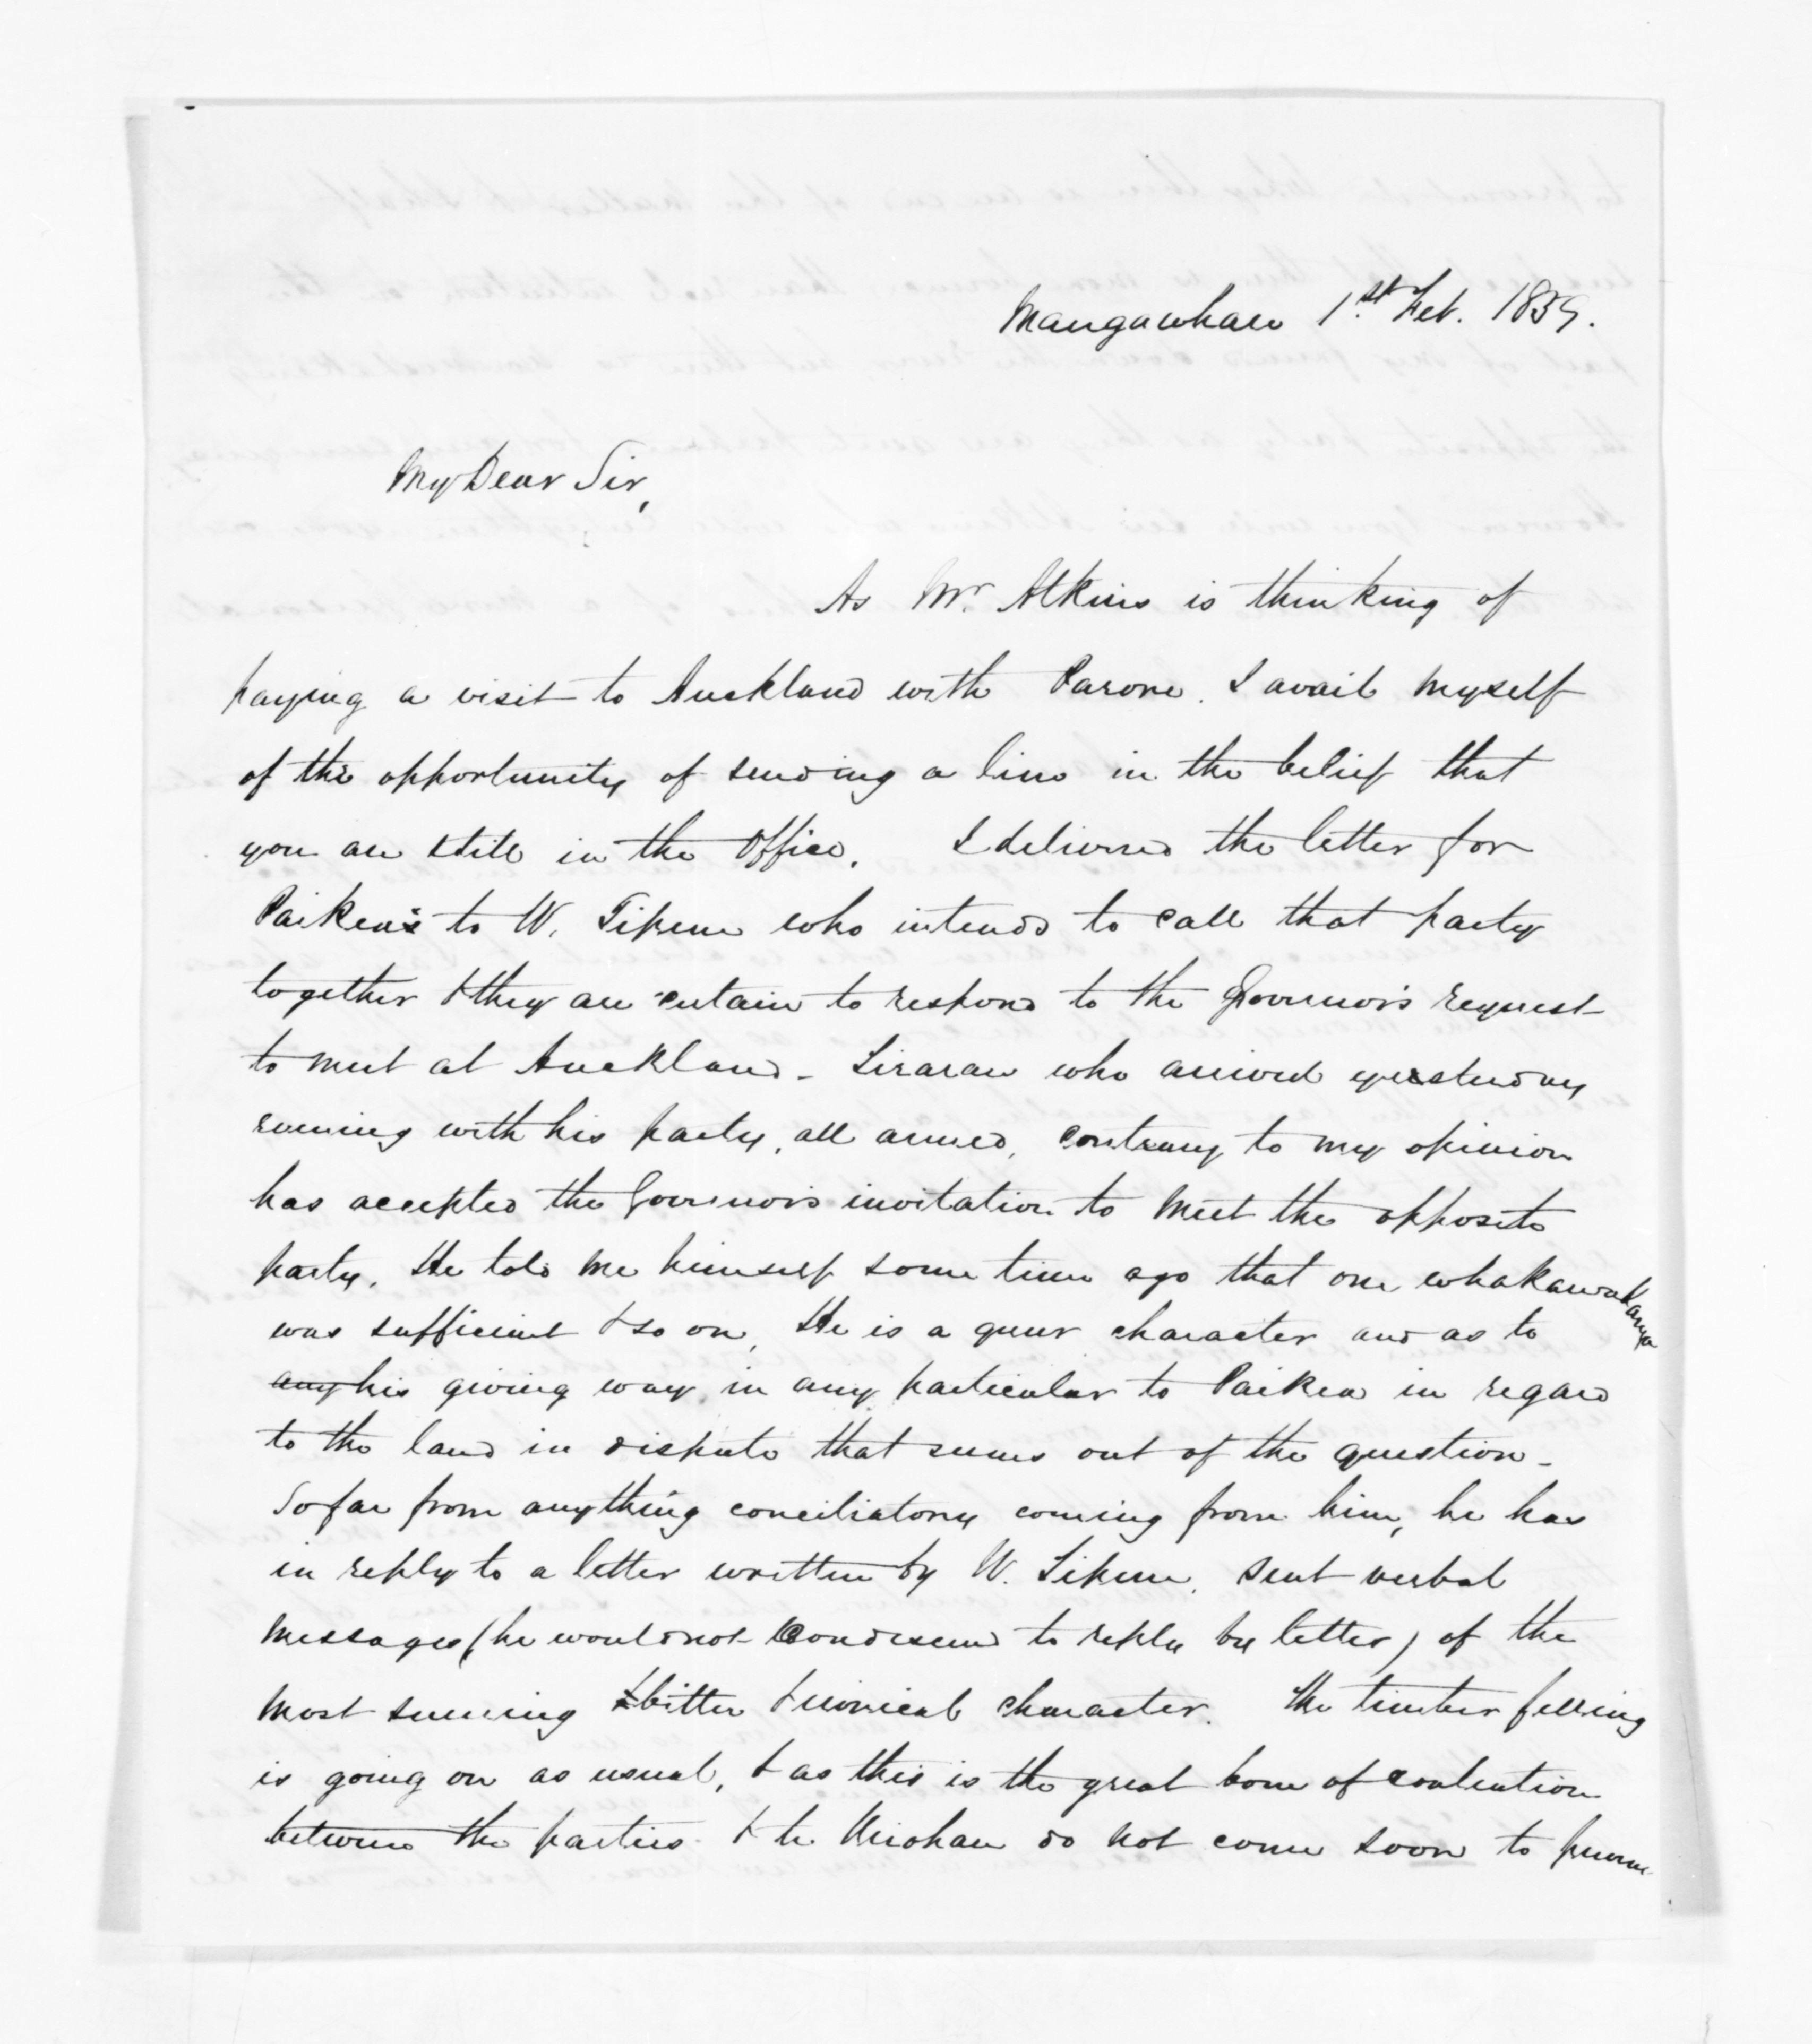 Mangawhare 1st Feb. 1859.
My Dear Sir,
As Mr. Atkins is thinking of
paying a visit to Auckland with Parore. I avail myself
of the opportunity of sending a line in the belief that
you are still in the Office. I delivered the letter for
Paikea's to W. Tipene who intends to call that party
together & they are certain to respond to the Governor's request
to meet at Auckland - Tirarau who arrived yesterday
evening with his party, all armed, contrary to my opinion
has accepted the Governor's invitation to meet the opposite
party. He told me himself some time ago that one whakawakanga
was sufficient & so on, He is a queer character and as to
any his giving way in any particular to Paikea in regard
to the land in dispute that seems out of the question -
So far from anything conciliatory coming from him, he has
in reply to a letter written by W. Tipene, sent verbal
messages (he would not condescend to reply by letter) of the
most sneering & bitter & ironical character. The timber felling
is going on as usual, & as this is the great bone of contention
between the parties & te Uriohau do not come soon to